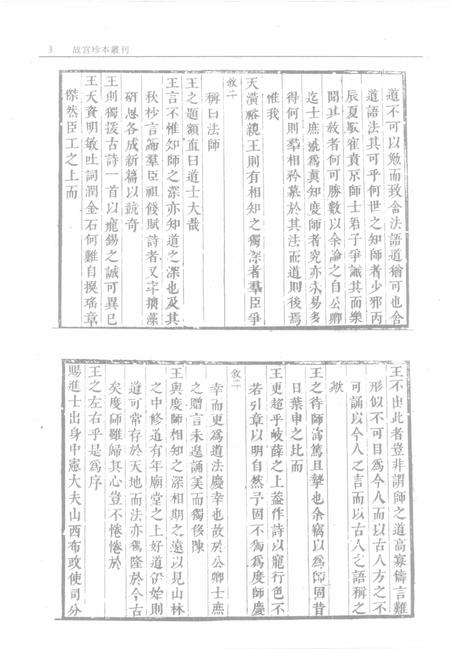 3 故宮珍本叢刊
道不可以勉而致舍法語道猶可也舍
道語法其可乎何世之知師者少邪丙
辰夏馭寉賁京師士君子爭識其面樂
聞其教者何可勝數以余論之自公卿
迄士庶號爲眞知度師者究亦未易多
得何則羣相矜慕於其法而道則後焉
惟我
天潢裕親王則有相知之獨深者羣臣爭
敘二
稱曰法師
王之題額直曰道士大哉
王言不惟知師之深亦知道之深也及其
秋杪言論羣臣祖餞賦詩者叉字摛藻
研思各成新篇以競奇
王則獨援古詩一首以寵錫之誠可異已
王天資明敏吐詞潤金石何難自摛瑤章
傑然臣工之上而
王不出此者豈非謂師之道高寡儔言難
形似不可目爲今人而以古人方之不
可誦以今人之言而以古人之語稱之
歟
王之待師篤且摯也余竊以爲師固昔
日葉申之比而
王更超乎岐薛之上葢作詩以寵行色不
若引章以明自然子固不獨爲度師慶
敘二
幸而更爲道法慶幸也故於公卿士庶
之贈言未遑誦美而獨侈陳
王與度師相知之深相期之遠以見山林
之中修道有年廟堂之上好道伊始則
道可常存於天地而法亦鴻隆於今古
矣度師雖歸其心豈不惓惓於
王之左右乎是爲序
賜進士出身中憲大夫山西布政使司分